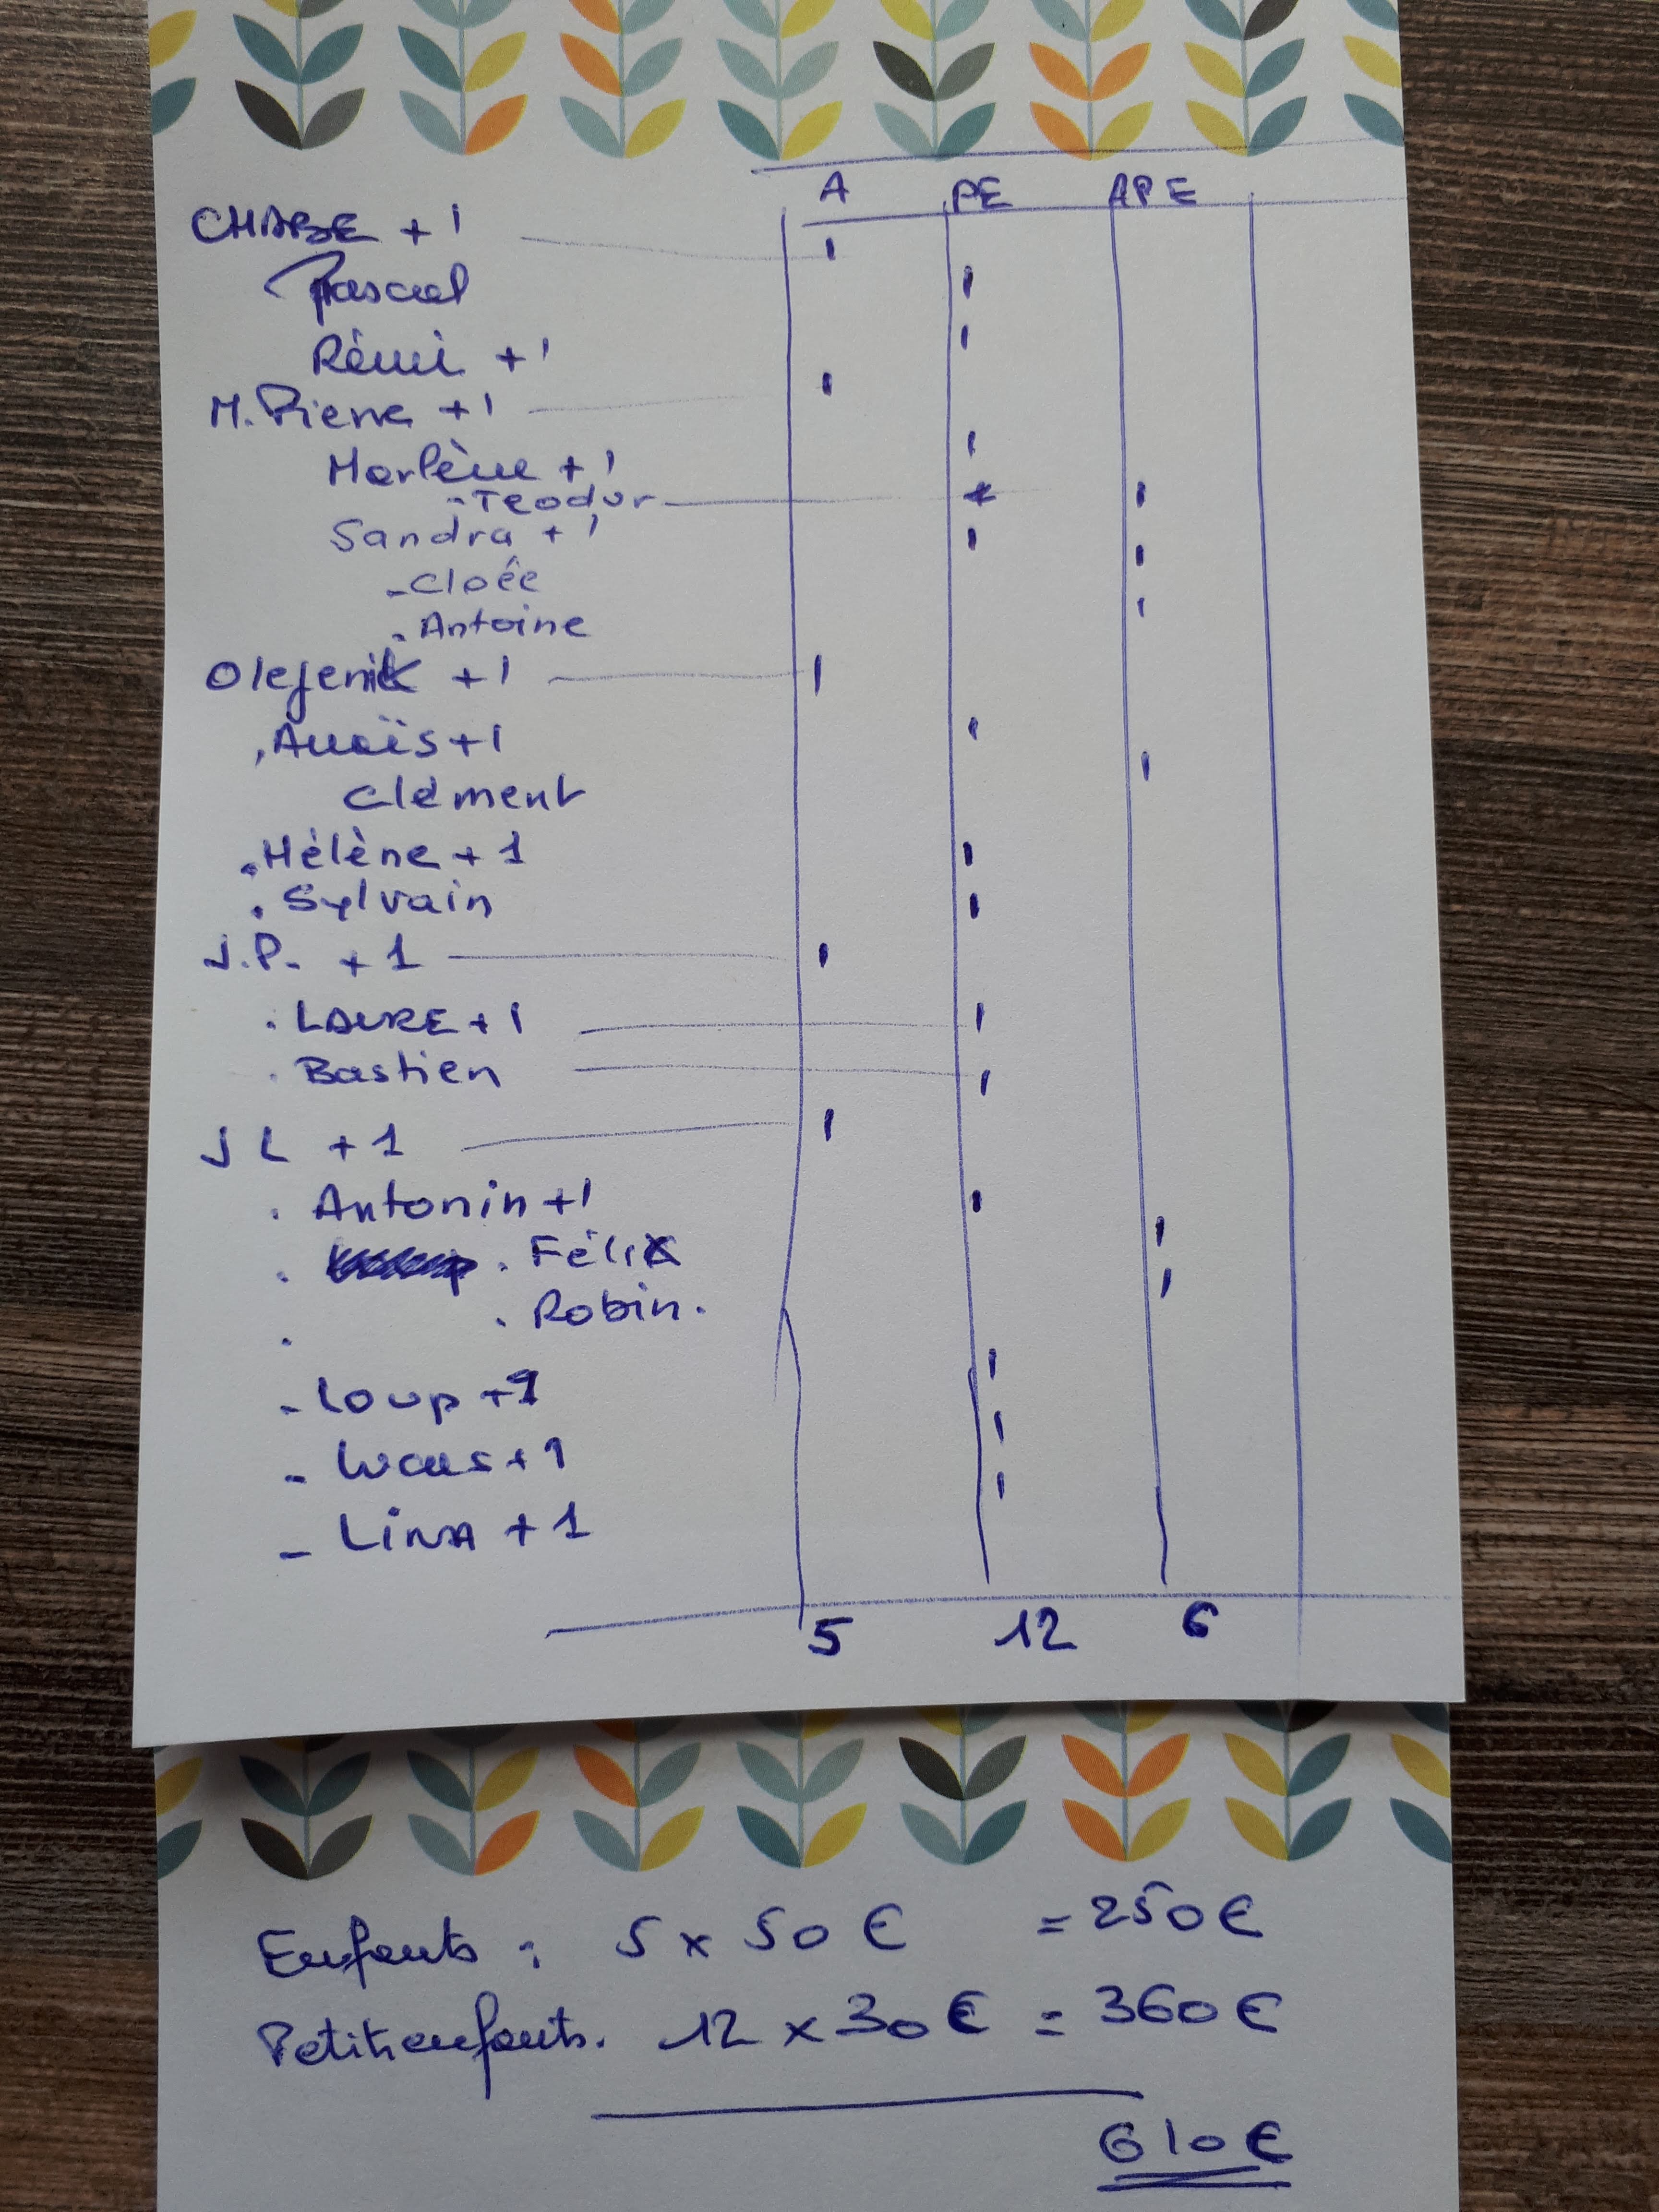 A PE APE
CHABE + 1 ı
Pascal ı
Rémi + 1 ı
M. Pierre + 1 ı
Marlène + 1 ı
- Teodor ı
Sandra + 1 ı
- Cloée ı
. Antoine ı
Olejenik + 1 ı
. Anaïs + 1 ı
Clément ı
. Hélène + 1 ı
. Sylvain ı
J.P. + 1 ı
. LAURE + 1 ı
. Bastien ı
J L + 1 ı
. Antonin + 1 ı
. Félix ı
. Robin. ı
- Loup + 1 ı
- Lucas + 1 ı
- LiNA + 1 ı
5 12 6
Enfants : 5 x 50 € = 250 €
Petits enfants. 12 x 30 € = 360 €
610 €